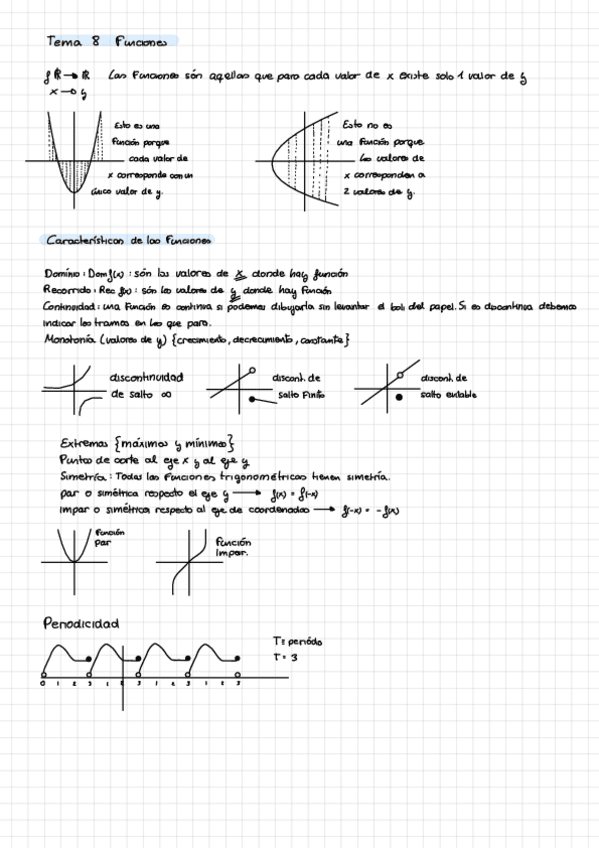 Tema 8 Funciones
f R → R Las Funciones són aquellas que para cada valor de x existe solo 1 valor de y
x → y
Esto es una
Función porque
cada valor de
x corresponde con un
único valor de y.
Esto no es
una Función porque
los valores de
x corresponden a
2 valores de y.
Características de las Funciones
Domínio: Dom f(x): són los valores de x donde hay función
Recorrido: Rec f(x): són los valores de y donde hay Función
Continuidad: una Función es continua si podemos dibujarla sin levantar el boli del papel. Si es discontinua debemos
indicar los tramos en los que para.
Monotonía (valores de y) {crecimiento, decrecimiento, constante}
discontinuidad
de salto ∞
discont. de
salto Finito
discont. de
salto evitable
Extremos {máximos y mínimos}
Puntos de corte al eje x y al eje y
Simetría: Todas las Funciones trigonométricas tienen simetría.
par o simétrica respecto el eje y → f(x) = f(-x)
impar o simétrica respecto al eje de coordenadas → f(-x) = -f(x)
Función
par
Función
Impar.
Periodicidad
T = período
T = 3
0 1 2 3 1 2 3 1 2 3 1 2 3